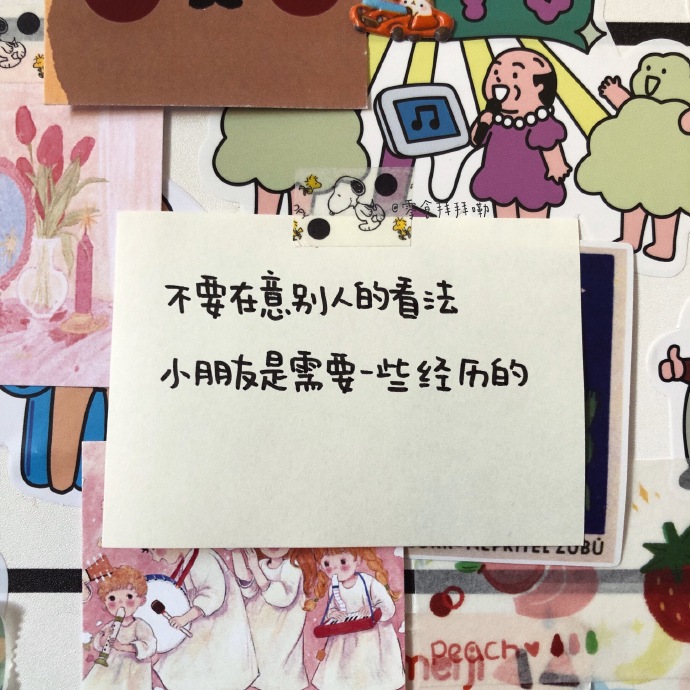 @零食拜拜嘞
不要在意别人的看法
小朋友是需要一些经历的
ZUBŮ
peach
meiji